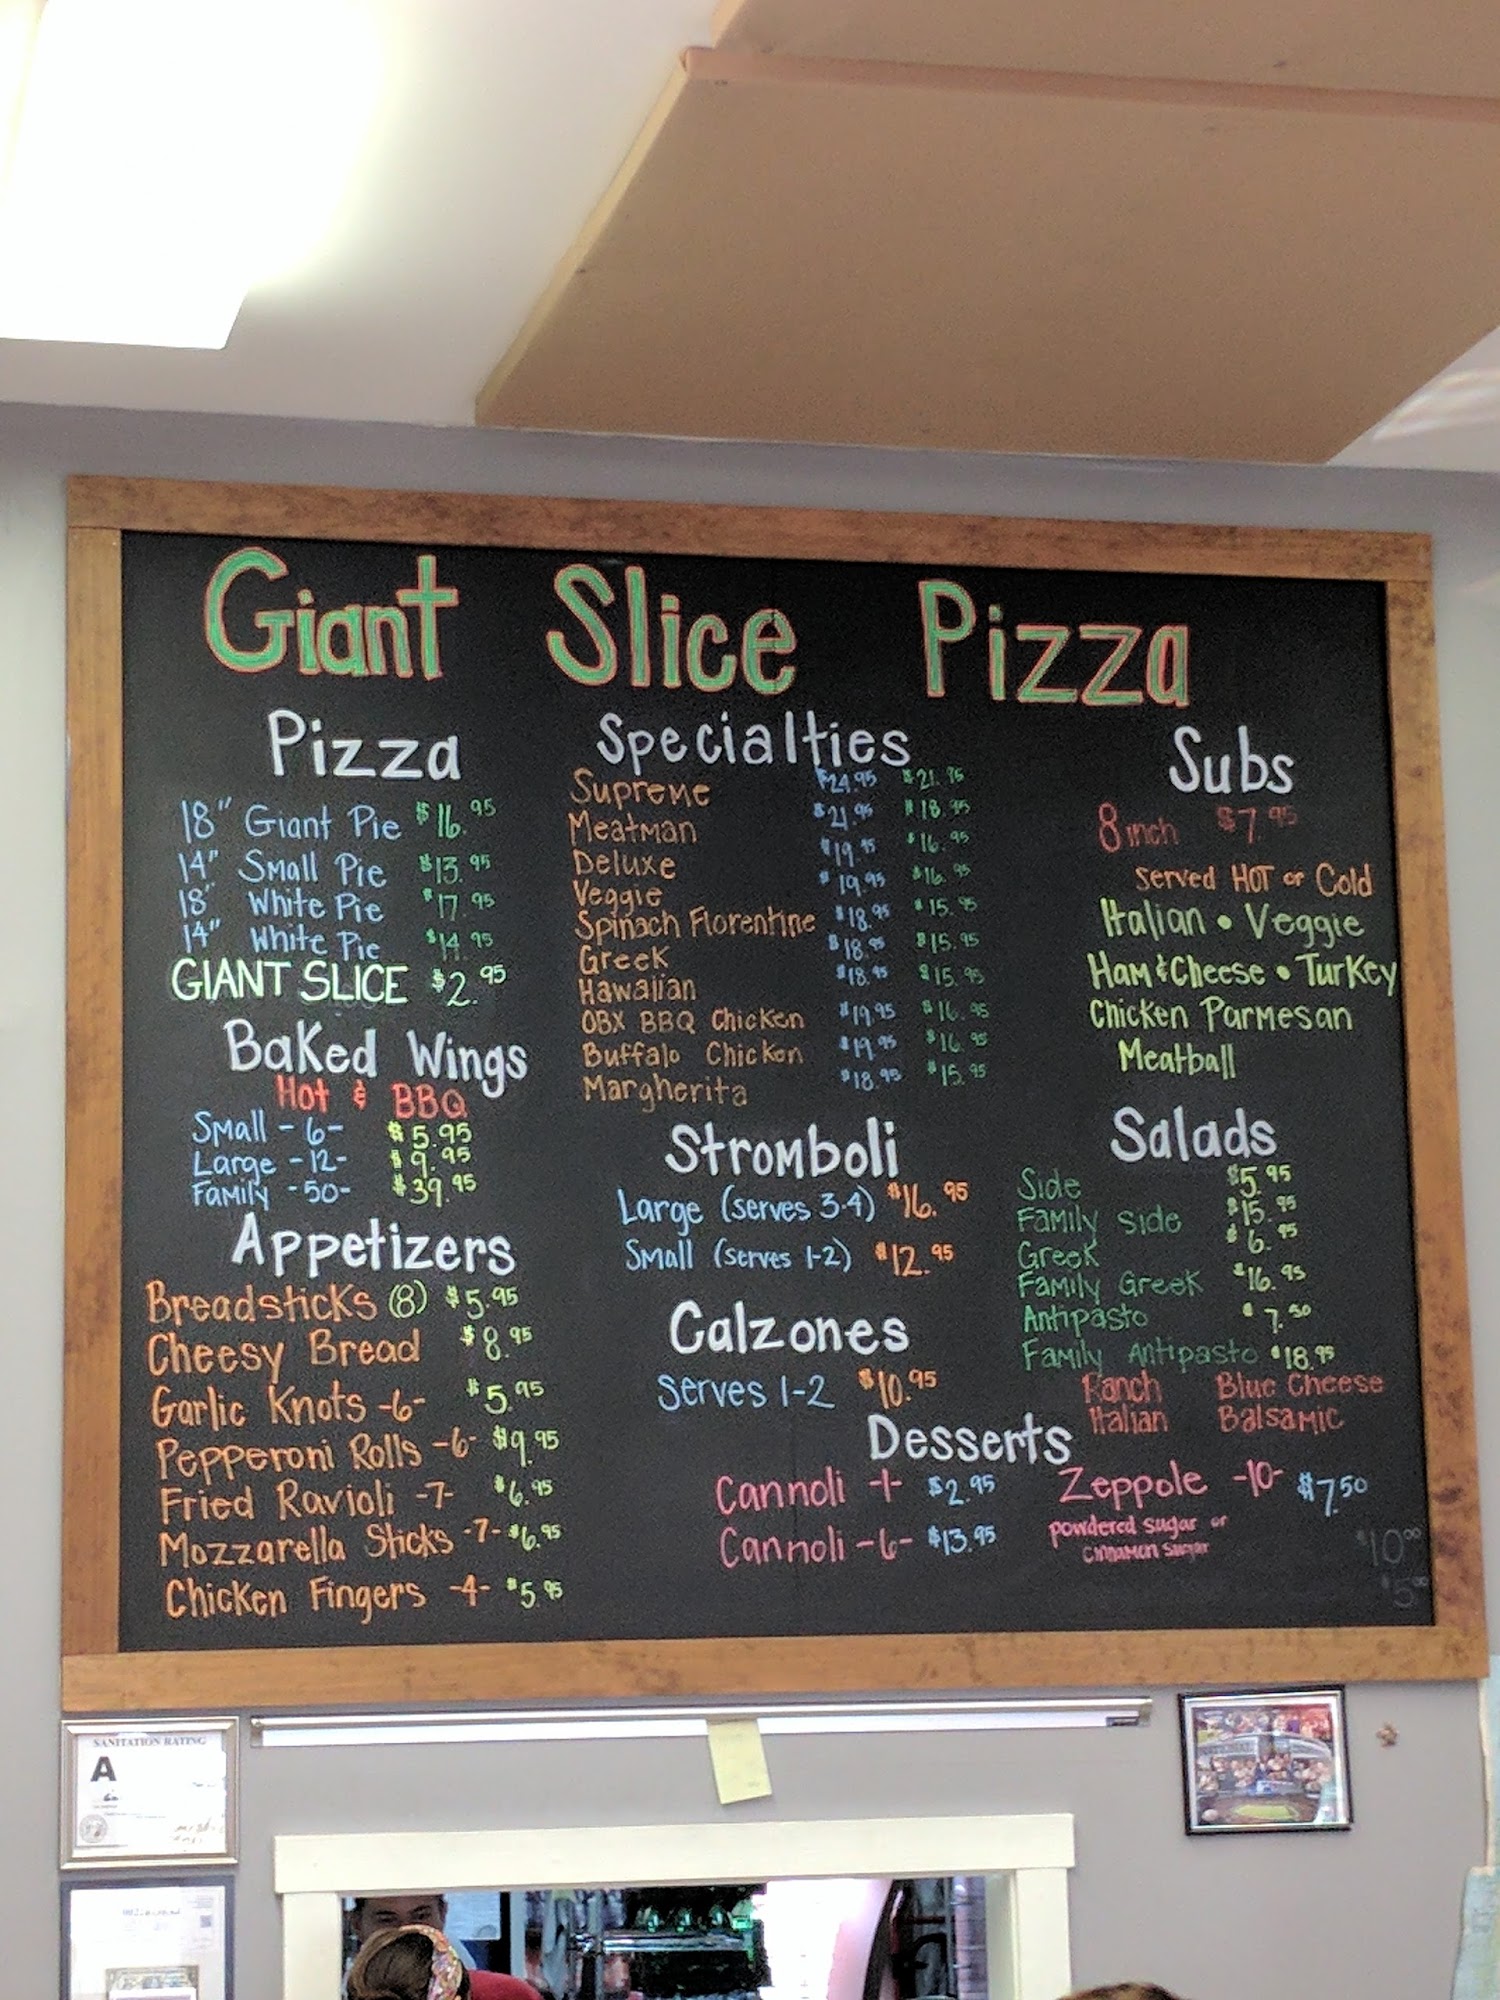 Giant Slice Pizza
Pizza
18" Giant Pie $16.95
14" Small Pie $13.95
18" White Pie $17.95
14" White Pie $14.95
GIANT SLICE $2.95
Baked Wings
Hot & BBQ
Small -6- $5.95
Large -12- $9.95
Family -50- $39.95
Appetizers
Breadsticks (8) $5.95
Cheesy Bread $8.95
Garlic Knots -6- $5.95
Pepperoni Rolls -6- $9.95
Fried Ravioli -7- $6.95
Mozzarella Sticks -7- $6.95
Chicken Fingers -4- $5.95
Specialties
Supreme $24.95 $21.95
Meatman $21.95 $18.95
Deluxe $19.95 $16.95
Veggie $19.95 $16.95
Spinach Florentine $18.95 $15.95
Greek $18.95 $15.95
Hawaiian $18.95 $15.95
OBX BBQ Chicken $19.95 $16.95
Buffalo Chicken $19.95 $16.95
Margherita $18.95 $15.95
Stromboli
Large (serves 3-4) $16.95
Small (serves 1-2) $12.95
Calzones
Serves 1-2 $10.95
Subs
8 inch $7.95
Served HOT or Cold
Italian • Veggie
Ham & Cheese • Turkey
Chicken Parmesan
Meatball
Salads
Side $5.95
Family Side $15.95
Greek $6.95
Family Greek $16.95
Antipasto $7.50
Family Antipasto $18.95
Ranch Blue Cheese
Italian Balsamic
Desserts
Cannoli -1- $2.95
Cannoli -6- $13.95
Zeppole -10- $7.50
powdered sugar or
cinnamon sugar
$10.00
$5.00
SANITATION RATING
A